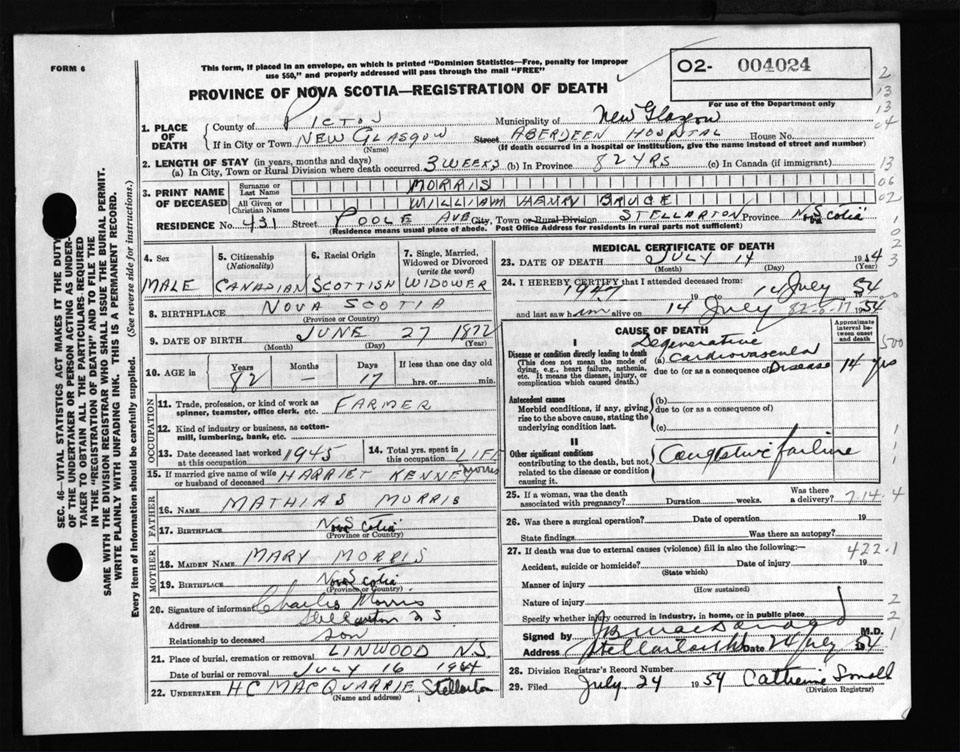 FORM 6
This form, if placed in an envelope, on which is printed "Dominion Statistics—Free, penalty for improper
use $50," and properly addressed will pass through the mail "FREE"
O2- 004024
For use of the Department only
PROVINCE OF NOVA SCOTIA—REGISTRATION OF DEATH
1. PLACE OF DEATH
County of PICTOU Municipality of New Glasgow
If in City or Town NEW GLASGOW Street ABERDEEN HOSPITAL House No.
(Name) (If death occurred in a hospital or institution, give the name instead of street and number)
2. LENGTH OF STAY (in years, months and days)
(a) In City, Town or Rural Division where death occurred 3 WEEKS (b) In Province 82 YRS (c) In Canada (if immigrant)
3. PRINT NAME OF DECEASED
Surname or Last Name MORRIS
All Given or Christian Names WILLIAM HENRY BRUCE
RESIDENCE No. 431 Street POOLE AVE City, Town or Rural Division STELLARTON Province Nova Scotia
(Residence means usual place of abode. Post Office Address for residents in rural parts not sufficient)
4. Sex
MALE
5. Citizenship (Nationality)
CANADIAN
6. Racial Origin
SCOTTISH
7. Single, Married, Widowed or Divorced (write the word)
WIDOWER
8. BIRTHPLACE NOVA SCOTIA
(Province or Country)
9. DATE OF BIRTH JUNE 27 1872
(Month) (Day) (Year)
10. AGE in Years Months Days If less than one day old
82 — 17 hrs. or min.
OCCUPATION
11. Trade, profession, or kind of work as spinner, teamster, office clerk, etc. FARMER
12. Kind of industry or business, as cotton-mill, lumbering, bank, etc.
13. Date deceased last worked at this occupation 1945
14. Total yrs. spent in this occupation LIFE
15. If married give name of wife or husband of deceased HARRIET KENNEY Morris
FATHER
16. NAME MATHIAS MORRIS
17. BIRTHPLACE Nova Scotia
(Province or Country)
MOTHER
18. MAIDEN NAME MARY MORRIS
19. BIRTHPLACE Nova Scotia
(Province or Country)
20. Signature of informant Charles Morris
Address Stellarton N S
Relationship to deceased Son
21. Place of burial, cremation or removal LINWOOD N.S.
Date of burial or removal JULY 16 1954
22. UNDERTAKER H C MACQUARRIE Stellarton
MEDICAL CERTIFICATE OF DEATH
23. DATE OF DEATH JULY 14 1954
(Month) (Day) (Year)
24. I HEREBY CERTIFY that I attended deceased from:
1947 19 to 14 July 54
and last saw him alive on 14 July 1954
CAUSE OF DEATH
Approximate interval between onset and death
I
Disease or condition directly leading to death
(This does not mean the mode of dying, e.g., heart failure, asthenia, etc. It means the disease, injury, or complication which caused death.)
Degenerative
(a) Cardiovascular
due to (or as a consequence of) Disease 14 yrs
Antecedent causes
Morbid conditions, if any, giving rise to the above cause, stating the underlying condition last.
(b)
due to (or as a consequence of)
(c)
II
Other significant conditions
contributing to the death, but not related to the disease or condition causing it.
Congestive failure
25. If a woman, was the death associated with pregnancy? Duration weeks. Was there a delivery?
7.14.4
26. Was there a surgical operation? Date of operation 19
State findings Was there an autopsy?
27. If death was due to external causes (violence) fill in also the following:—
422.1
Accident, suicide or homicide? Date of injury 19
(State which)
Manner of injury
(How sustained)
Nature of injury
Specify whether injury occurred in industry, in home, or in public place
Signed by J B MacDonald M.D.
Address Stellarton NS Date 24 July 1954
28. Division Registrar's Record Number
29. Filed July 24 1954 Catherine Small
(Division Registrar)
SEC. 46—VITAL STATISTICS ACT MAKES IT THE DUTY
OF THE UNDERTAKER OR PERSON ACTING AS UNDER-
TAKER TO OBTAIN ALL THE PARTICULARS REQUIRED
IN THE "REGISTRATION OF DEATH" AND TO FILE THE
SAME WITH THE DIVISION REGISTRAR WHO SHALL ISSUE THE BURIAL PERMIT.
WRITE PLAINLY WITH UNFADING INK. THIS IS A PERMANENT RECORD.
Every item of information should be carefully supplied. (See reverse side for instructions.)